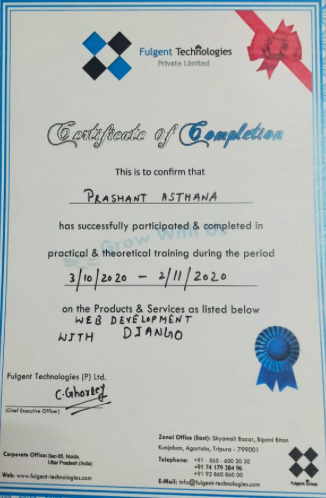 Fulgent Technologies
Private Limited
Certificate of Completion
This is to confirm that
PRASHANT ASTHANA
has successfully participated & completed in
Grow With Us
practical & theoretical training during the period
3/10/2020 – 2/11/2020
on the Products & Services as listed below
WEB DEVELOPMENT
WITH DJANGO
Fulgent Technologies (P) Ltd.
(Chief Executive Officer)
Corporate Office: Sec-65, Noida,
Uttar Pradesh (India)
Web: www.fulgent-technologies.com
Zonal Office (East): Shyamali Bazar, Bipani Bitan
Kunjaban, Agartala, Tripura - 799001
Telephone: +91 - 565 - 600 20 30
+91 74 179 384 96
+91 92 860 860 00
E-Mail: info@fulgent-technologies.com
Fulgent Group